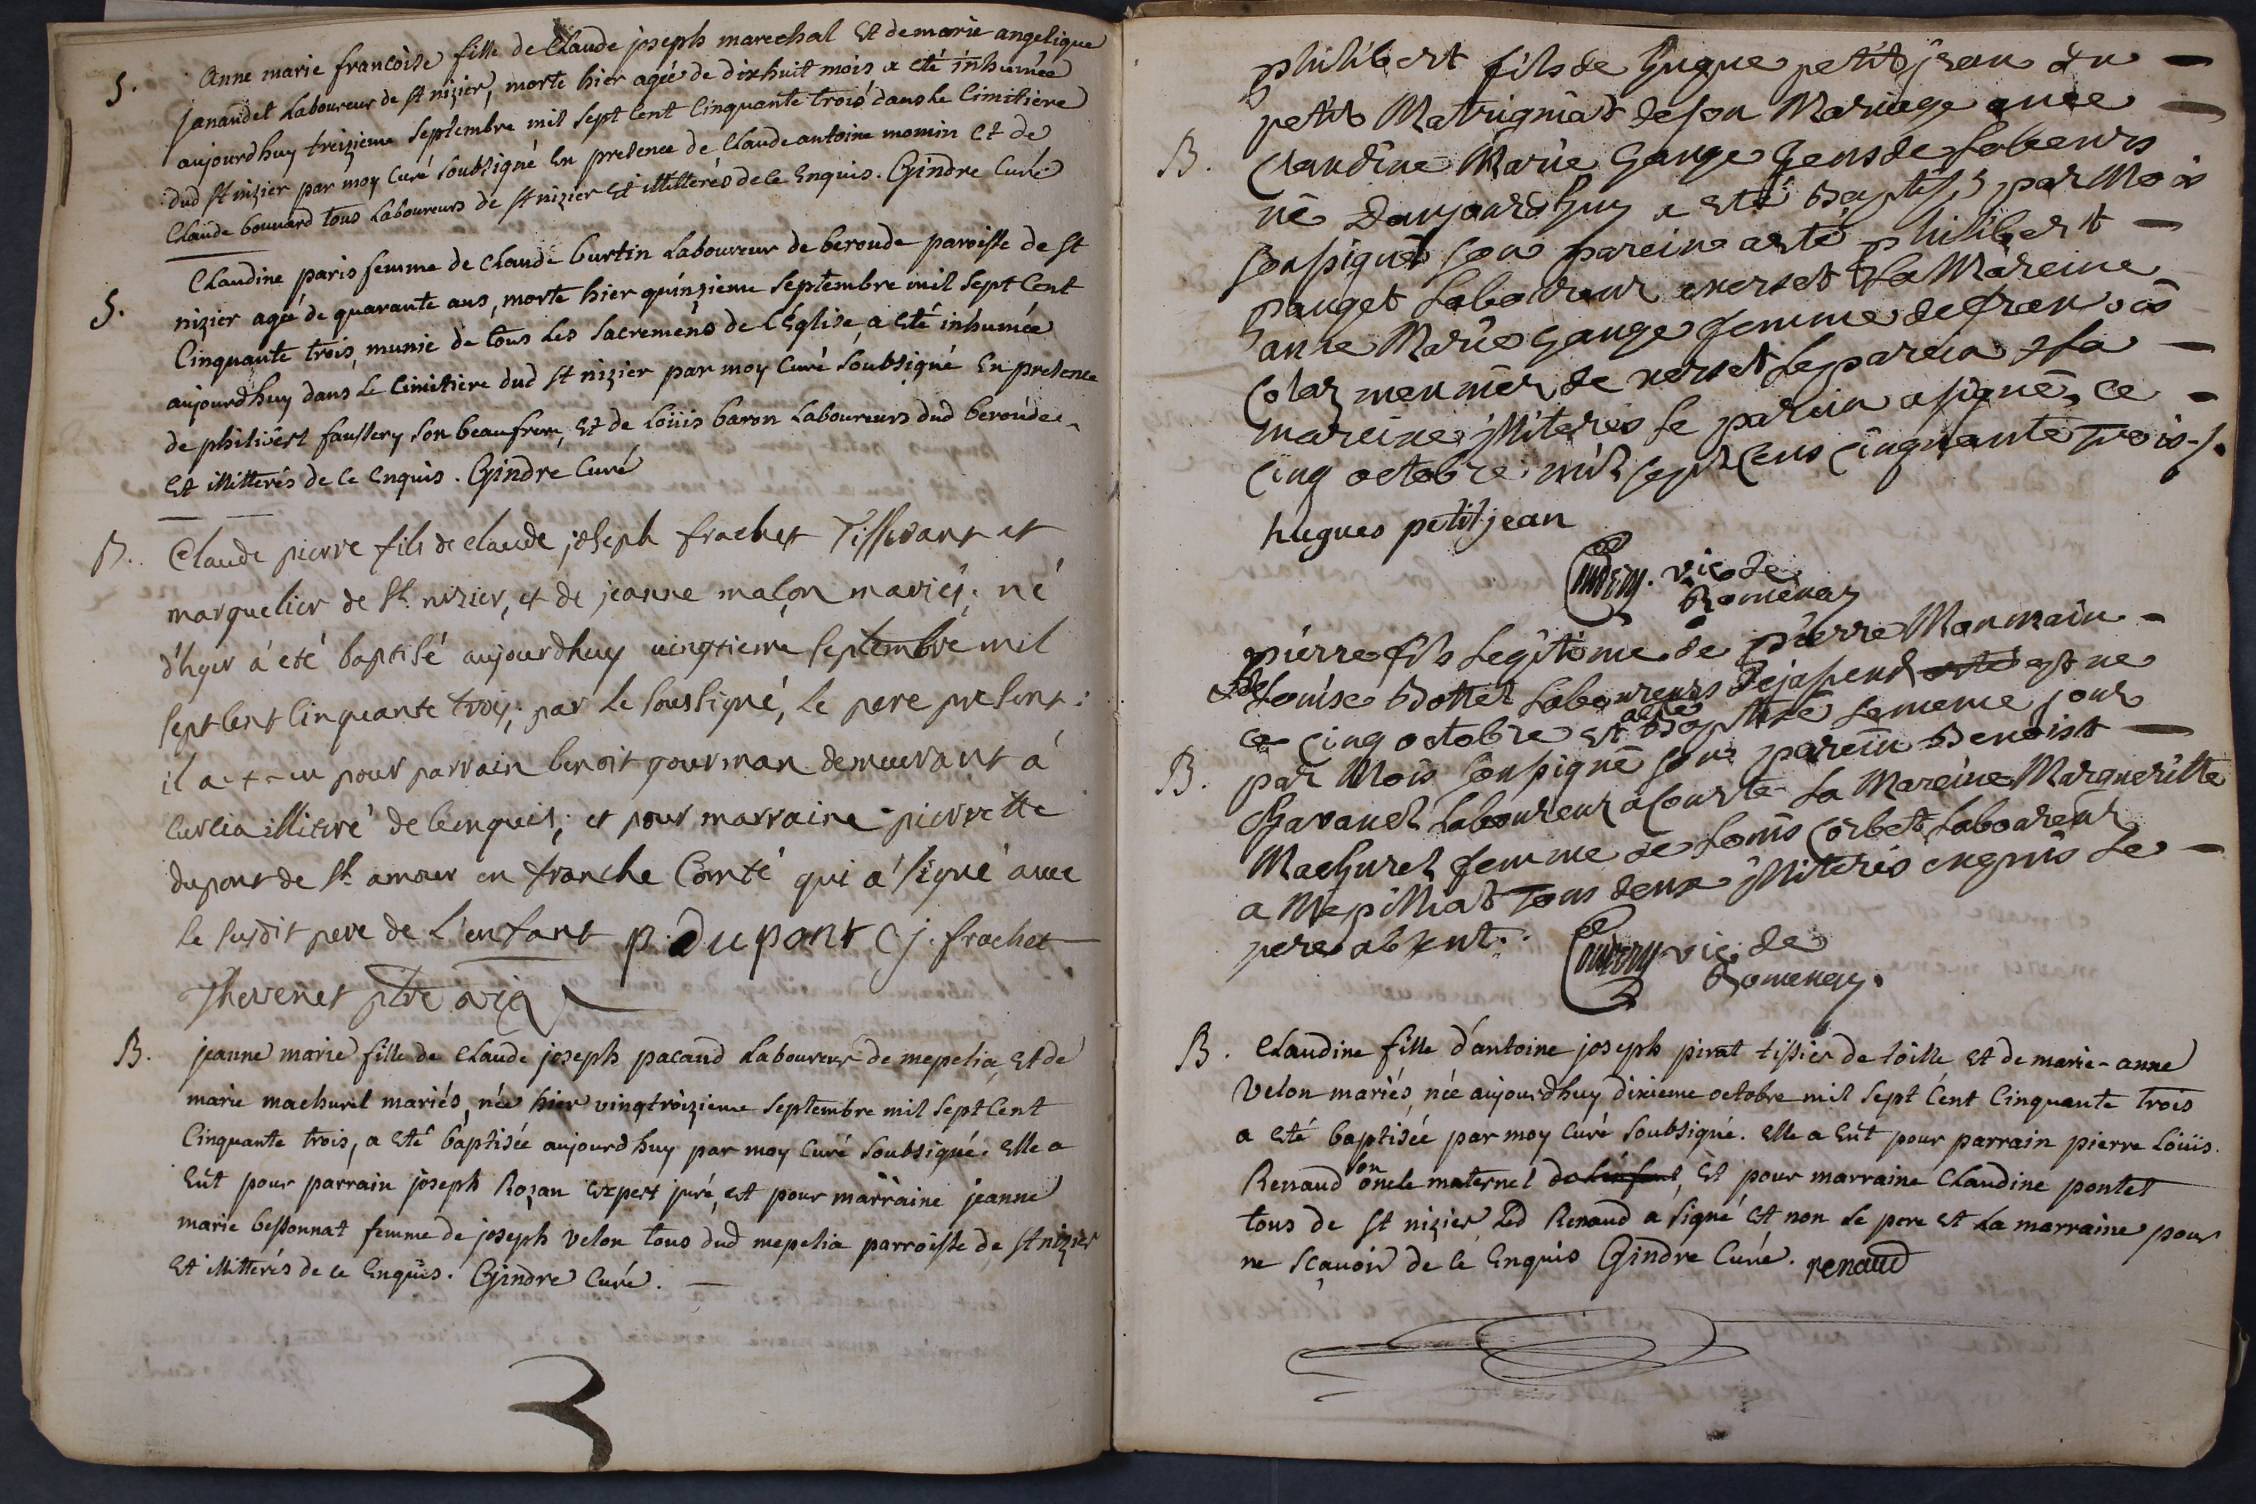 S. Anne marie francoise fille de Claude joseph marechal Et de marie angelique
janaudet Laboureur de St nizier, morte hier agée de dixhuit mois a eté inhumée
aujourdhuy treizieme Septembre mil sept Cent Cinquante trois dans le Cimitiere
dud St nizier par moy Curé Soubsigné En presence de Claude antoine momin et de
Claude bouvard tous Laboureurs de St nizier Et illitterés de ce Enquis. Gindre Curé
S. Claudine paris femme de Claude burtin Laboureur de beroude paroisse de St
nizier agée de quarante ans, morte hier quinzieme Septembre mil Sept Cent
Cinquante trois, munie de tous Les Sacremens de L'Eglise, a Eté inhumée
aujourdhuy dans Le Cimitiere dud St nizier par moy Curé Soubsigné En presence
de philibert faussery son beaufrere, Et de Loüis baron Laboureurs dud beroude
Et illitterés de ce Enquis. Gindre Curé
B. Claude pierre fils de claude joseph frachet Tisserant et
marguelier de St. nizier, et de jeanne maçon mariés; né
d'hyer à eté baptisé aujourdhuy vingtieme Septembre mil
Sept Cent Cinquante trois; par Le Soussigné, le pere present:
il a eu pour parrain benoit gourman demeurant à
Curcia illitéré de ce enquis; et pour marraine pierrette
dupont de St. amour en franche Comté qui a signé avec
le susdit pere de L'enfant p. Dupont C j. frachet
Thevenet ptre vic
B. jeanne marie fille de Claude joseph pacaud Laboureur de mepelia, Et de
marie machuret mariés, née hier vingtroizieme Septembre mil Sept Cent
Cinquante trois, a Eté baptisée aujourdhuy par moy Curé Soubsigné. Elle a
Eüt pour parrain joseph Rozan Expert juré, et pour marraine jeanne
marie bessonnat femme de joseph velon tous dud mepelia parroisse de St nizier
Et illitterés de ce Enquis. Gindre Curé.
3
philibert fils de hugue petitjean du
petit Matrignat de son Mariage avec
B. Claudine Marie Gange Gens de Labeurs
né Daujourdhuy a eté Baptisé par Mois
sousigné son pareine a eté philibert
pauget Laboureur a verset & La Mareine
anne Marie Gange femme de francois
Colas meunier de verset Le parein & La
mareine illiterés Le parein a signé, ce
Cinq octobre mil sept Cens Cinquante trois.
hugues petitjean
vic de
Romenay
pierre fils Legitime de pierre Monmain
& de Louise Bottet Laboureurs Dejasend est ne
ce Cinq octobre et a eté Baptisé Le meme jour
B. par Mois sousigné son parein Benoist
Chavanel Laboureur a Courte La Mareine Margueritte
Machuret femme de Louis Corbet Laboureur
a Mepilliat Tous deux illiterés enquis Le
pere absent.
vic. de
Romenay.
B. Claudine fille d'antoine joseph pirat tissier de toille Et de marie-anne
Velon mariés, née aujourdhuy dixieme octobre mil Sept Cent Cinquante trois
a Eté baptisée par moy Curé Soubsigné. Elle a Eüt pour parrain pierre Loüis.
Renaud son oncle maternel de L'enfant, Et pour marraine Claudine pontet
tous de St nizier Led Renaud a signé Et non Le pere Et La marraine pour
ne Sçavoir de ce Enquis Gindre Curé. renaud